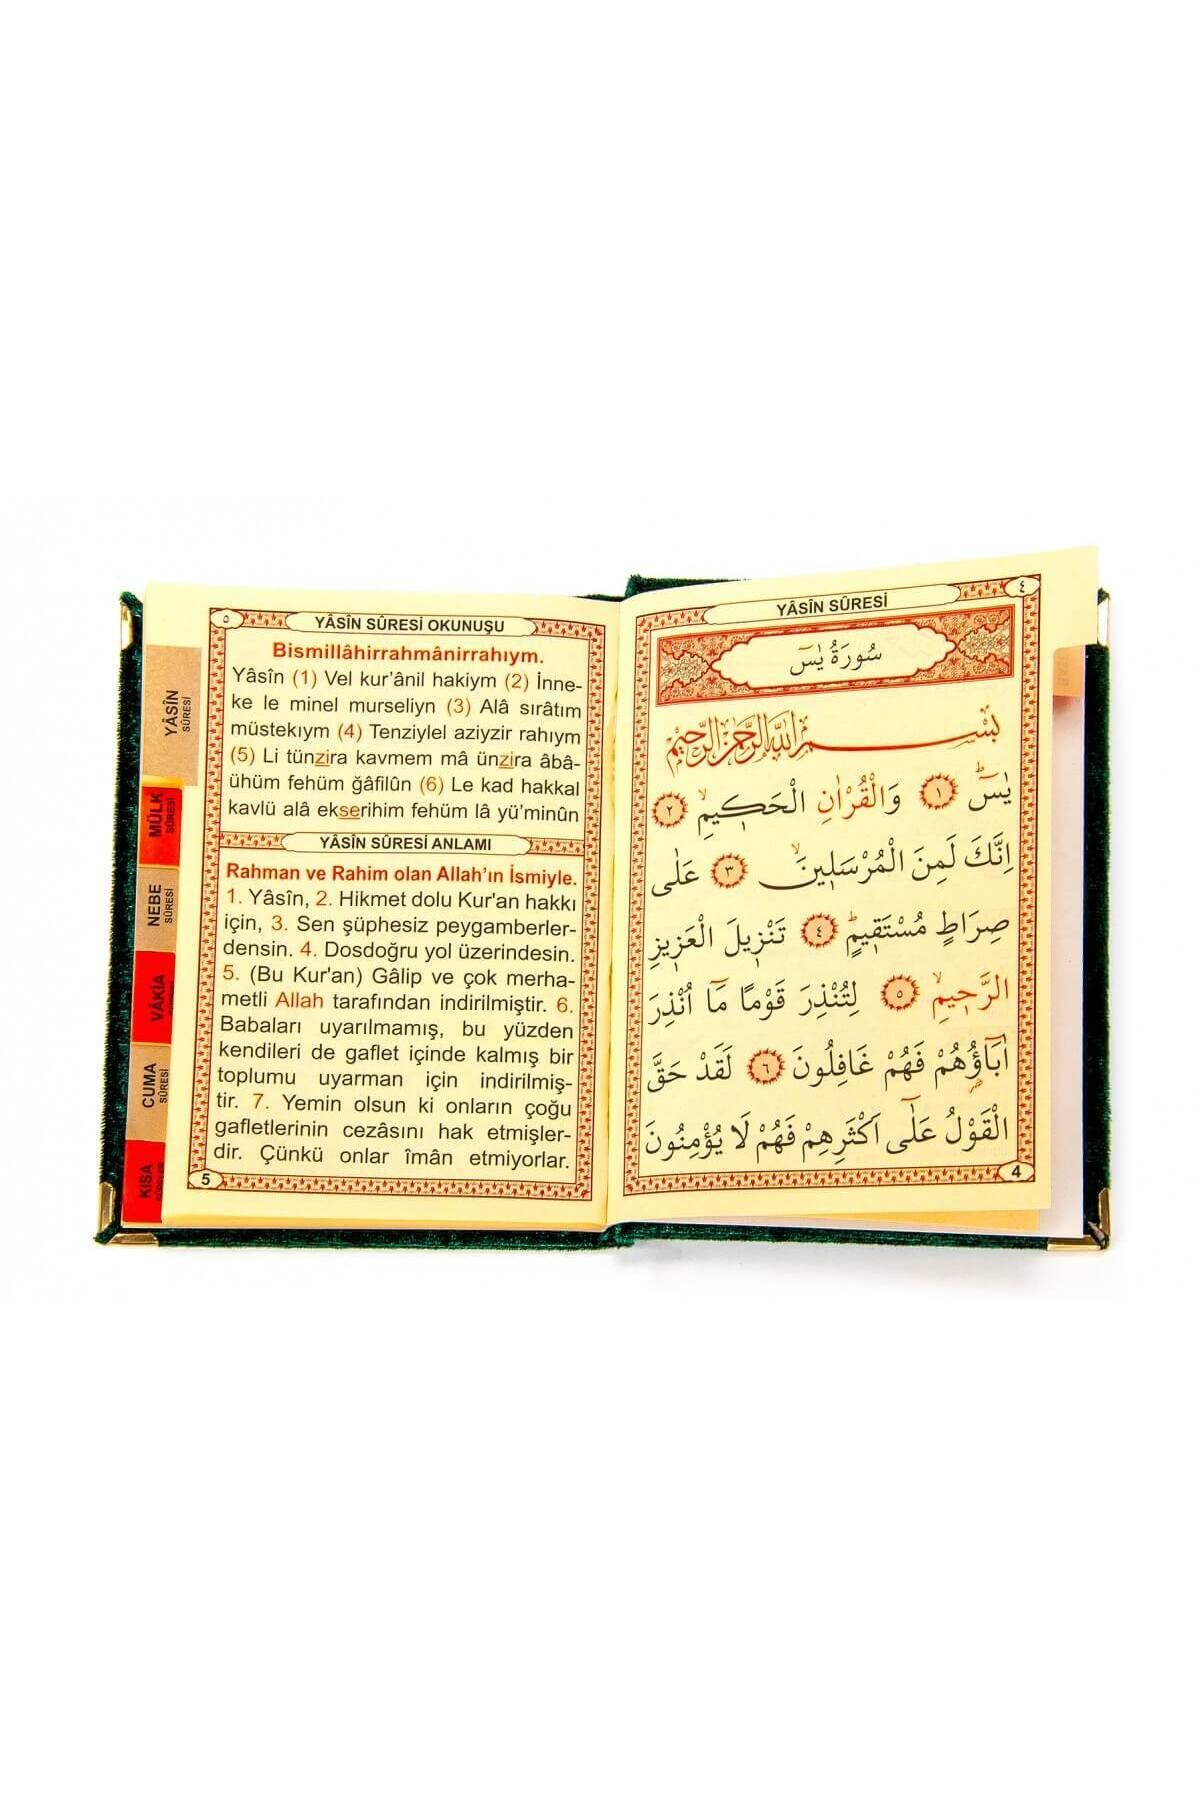 ٥
YÂSİN SÛRESİ OKUNUŞU
Bismillâhirrahmânirrahıym.
Yâsîn (1) Vel kur'ânil hakiym (2) İnne-
ke le minel murseliyn (3) Alâ sırâtım
müstekıym (4) Tenziylel aziyzir rahıym
(5) Li tünzira kavmem mâ ünzira âbâ-
ühüm fehüm ğâfilûn (6) Le kad hakkal
kavlü alâ ekserihim fehüm lâ yü'minûn
YÂSİN SÛRESİ ANLAMI
Rahman ve Rahim olan Allah'ın İsmiyle.
1. Yâsîn, 2. Hikmet dolu Kur'an hakkı
için, 3. Sen şüphesiz peygamberler-
densin. 4. Dosdoğru yol üzerindesin.
5. (Bu Kur'an) Gâlip ve çok merha-
metli Allah tarafından indirilmiştir. 6.
Babaları uyarılmamış, bu yüzden
kendileri de gaflet içinde kalmış bir
toplumu uyarman için indirilmiş-
tir. 7. Yemin olsun ki onların çoğu
gafletlerinin cezâsını hak etmişler-
dir. Çünkü onlar îmân etmiyorlar.
5
YÂSİN
SÛRESİ
MÜLK
SÛRESİ
NEBE
SÛRESİ
VÂKIA
CUMA
SÛRESİ
KISA
٤
YÂSİN SÛRESİ
سُورَةُ يٰسٓ
بِسْمِ اللّٰهِ الرَّحْمٰنِ الرَّحِيمِ
يٰسٓ ﴿١﴾ وَالْقُرْاٰنِ الْحَكٖيمِ ﴿٢﴾
اِنَّكَ لَمِنَ الْمُرْسَلٖينَ ﴿٣﴾ عَلٰى
صِرَاطٍ مُسْتَقٖيمٍ ﴿٤﴾ تَنْزٖيلَ الْعَزٖيزِ
الرَّحٖيمِ ﴿٥﴾ لِتُنْذِرَ قَوْمًا مَٓا اُنْذِرَ
اٰبَٓاؤُهُمْ فَهُمْ غَافِلُونَ ﴿٦﴾ لَقَدْ حَقَّ
الْقَوْلُ عَلٰٓى اَكْثَرِهِمْ فَهُمْ لَا يُؤْمِنُونَ
4